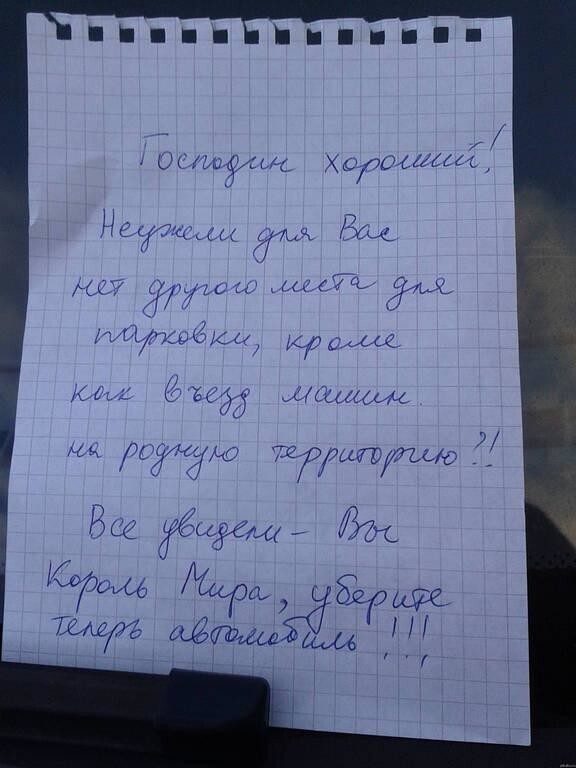 Господин хороший!
Неужели для Вас
нет другого места для
парковки, кроме
как въезд машин
на родную территорию?!
Все увидели – Вы
Король Мира, уберите
теперь автомобиль!!!